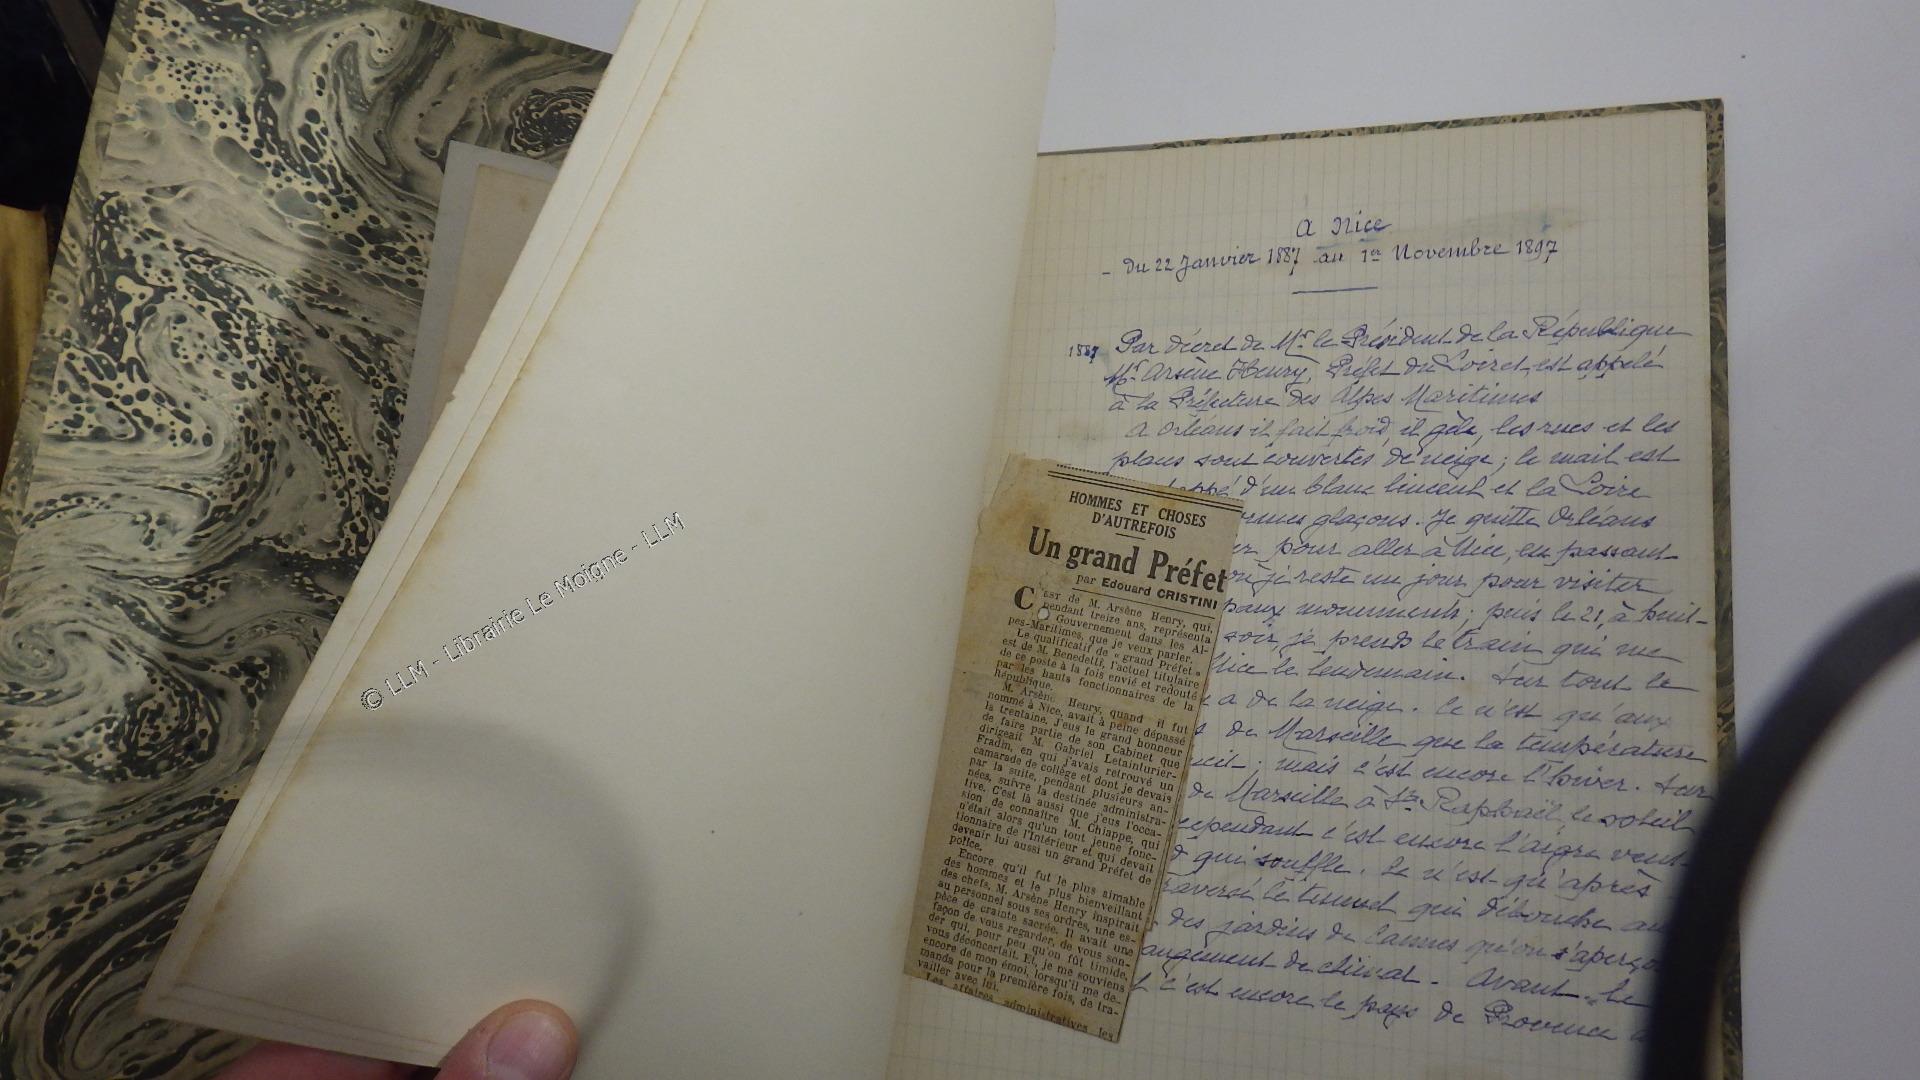 © LLM - Librairie Le Moigne - LLM
A Nice
- Du 22 Janvier 1887 au 1er Novembre 1897
1887 Par décret de Mr le Président de la République
Mr Arsène Henry, Préfet du Loiret, est appelé
à la Préfecture des Alpes Maritimes
A Orléans il fait froid, il gèle, les rues et les
places sont couvertes de neige ; le mail est
d'un blanc linceul et la Loire
glaçons. Je quitte Orléans
pour aller à Nice, en passant
où je reste un jour, pour visiter
monuments ; puis le 21, à huit-
soir, je prends le train qui me
Nice le lendemain. Sur tout le
a de la neige. Ce n'est qu'aux
de Marseille que la température
; mais c'est encore l'hiver. Sur
de Marseille à St Raphaël, le soleil
cependant c'est encore l'aigre vent
qui souffle. Ce n'est qu'après
traversé le tunnel qui débouche au
des jardins de Cannes qu'on s'aperço
angement de climat. Avant, le
c'est encore le pays de Provence
HOMMES ET CHOSES
D'AUTREFOIS
Un grand Préfet
par Edouard CRISTINI
C'EST de M. Arsène Henry, qui,
pendant treize ans, représenta
le Gouvernement dans les Al-
pes-Maritimes, que je veux parler.
Le qualificatif de « grand Préfet »
est de M. Benedetti, l'actuel titulaire
de ce poste à la fois envié et redouté
par les hauts fonctionnaires de la
République.
M. Arsène Henry, quand il fut
nommé à Nice, avait à peine dépassé
la trentaine. J'eus le grand honneur
de faire partie de son Cabinet que
dirigeait M. Gabriel Letainturier-
Fradin, en qui j'avais retrouvé un
camarade de collège et dont je devais
par la suite, pendant plusieurs an-
nées, suivre la destinée administra-
tive. C'est là aussi que j'eus l'occa-
sion de connaître M. Chiappe, qui
n'était alors qu'un tout jeune fonc-
tionnaire de l'Intérieur et qui devait
devenir lui aussi un grand Préfet de
police.
Encore qu'il fut le plus aimable
des hommes et le plus bienveillant
des chefs, M. Arsène Henry inspirait
au personnel sous ses ordres, une es-
pèce de crainte sacrée. Il avait une
façon de vous regarder, de vous son-
der qui, pour peu qu'on fût timide,
vous déconcertait. Et, je me souviens
encore de mon émoi, lorsqu'il me de-
manda pour la première fois, de tra-
vailler avec lui.
Les affaires administratives les